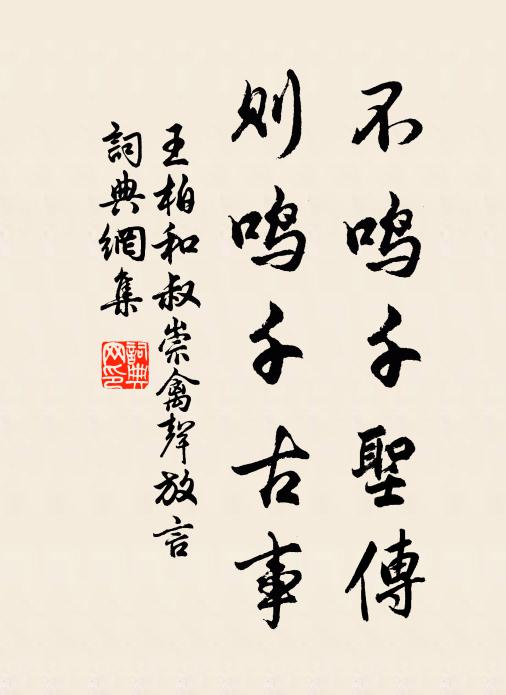 不鸣千聖傳
则鸣千古事
王柏和叔崇禽聲放言
詞典網集
詞典
网印